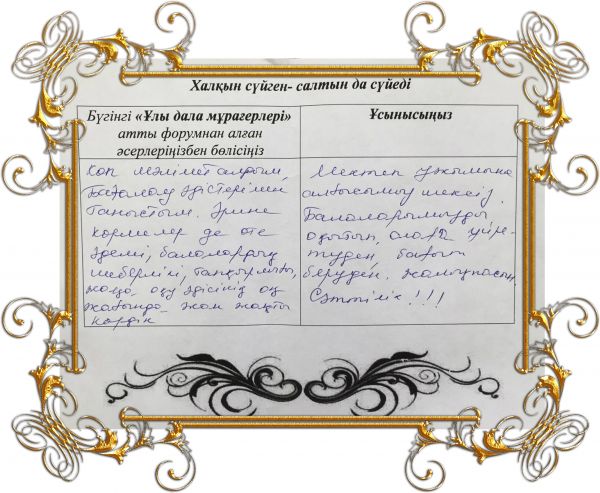 Халқын сүйген- салтын да сүйеді
Бүгінгі «Ұлы дала мұрагерлері»
атты форумнан алған
әсерлеріңізбен бөлісіңіз
Көп мәлімет алдым,
Бағалау әдістерімен
таныстым. Әрине
көрмелер де өте
әдемі, балалардың
шеберлігі, тапқырлығы,
жаңа оқу әдісінің оң
жағында
көрдік
Ұсынысыңыз
Мектеп ұжымына
алғысымыз шексіз.
Балаларымызды
оқытып, оларға үйре-
туден, бағыт
беруден. жалықпасын.
Сәттілік!!!